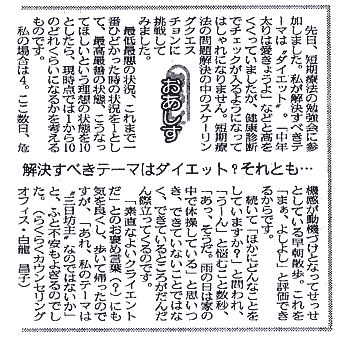 おあしす
解決すべきテーマはダイエット？それとも…
先日、短期療法の勉強会に参
加しました。私が解決すべきテ
ーマは〝ダイエット〟。「中年
太りは愛きょうよ」などと高を
くくっていましたが、健康診断
でチェックが入るようになって
はしゃれになりません。短期療
法の問題解決の中のスケーリン
グクエス
チョンに
挑戦して
みました。
最低最悪の状況、これまで一
番ひどかった時の状況を1とし
て、最高最善の状態、こうなっ
てほしいという理想の状態を10
としたら、現時点では1から10
のどれぐらいになるかを考える
ものです。
私の場合は4。ここ数日、危
機感が動機づけとなってせっせ
としている早朝散歩。これを
「まぁ、よしよし」と評価でき
るからです。
続いて「ほかにどんなことを
していますか？」と問われ、
「うーん」と悩むこと数秒、
「あっ、そうだ。雨の日は家の
中で体操している」と思いつ
き、できていないことではな
く、できているところがだんだ
ん際立ってくるのです。
「素直なよいクライエント
だ」とのお褒め言葉（？）にも
気を良くし、歩いて帰ったので
すが、「あれ、私のテーマは
〝三日坊主〟なのではないか」
と、ふと不安もよぎるのでし
た。（らくらくカウンセリング
オフィス・白龍　昌子）